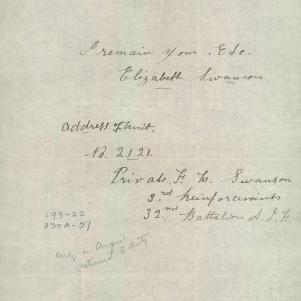 I remain your. Etc.
Elizabeth Swanson
Address of Unit.
No. 2121.
Private. F. H. Swanson
3.rd Reinforcements
32.nd Battalion A. I. F.
193-22
330A-51
early in August
returned to duty